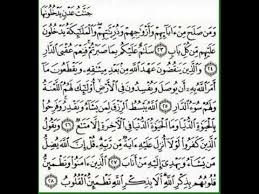 جَنَّٰتُ عَدْنٍ يَدْخُلُونَهَا
وَمَن صَلَحَ مِنْ ءَابَآئِهِمْ وَأَزْوَٰجِهِمْ وَذُرِّيَّٰتِهِمْ وَٱلْمَلَٰٓئِكَةُ يَدْخُلُونَ
عَلَيْهِم مِّن كُلِّ بَابٍ ٢٣ سَلَٰمٌ عَلَيْكُم بِمَا صَبَرْتُمْ فَنِعْمَ عُقْبَى ٱلدَّارِ
٢٤ وَٱلَّذِينَ يَنقُضُونَ عَهْدَ ٱللَّهِ مِنۢ بَعْدِ مِيثَٰقِهِۦ وَيَقْطَعُونَ مَآ
أَمَرَ ٱللَّهُ بِهِۦٓ أَن يُوصَلَ وَيُفْسِدُونَ فِى ٱلْأَرْضِ أُو۟لَٰٓئِكَ لَهُمُ ٱللَّعْنَةُ
وَلَهُمْ سُوٓءُ ٱلدَّارِ ٢٥ ٱللَّهُ يَبْسُطُ ٱلرِّزْقَ لِمَن يَشَآءُ وَيَقْدِرُ وَفَرِحُوا۟
بِٱلْحَيَوٰةِ ٱلدُّنْيَا وَمَا ٱلْحَيَوٰةُ ٱلدُّنْيَا فِى ٱلْءَاخِرَةِ إِلَّا مَتَٰعٌ ٢٦ وَيَقُولُ
ٱلَّذِينَ كَفَرُوا۟ لَوْلَآ أُنزِلَ عَلَيْهِ ءَايَةٌ مِّن رَّبِّهِۦ قُلْ إِنَّ ٱللَّهَ يُضِلُّ
مَن يَشَآءُ وَيَهْدِىٓ إِلَيْهِ مَنْ أَنَابَ ٢٧ ٱلَّذِينَ ءَامَنُوا۟ وَتَطْمَئِنُّ
قُلُوبُهُم بِذِكْرِ ٱللَّهِ أَلَا بِذِكْرِ ٱللَّهِ تَطْمَئِنُّ ٱلْقُلُوبُ ٢٨